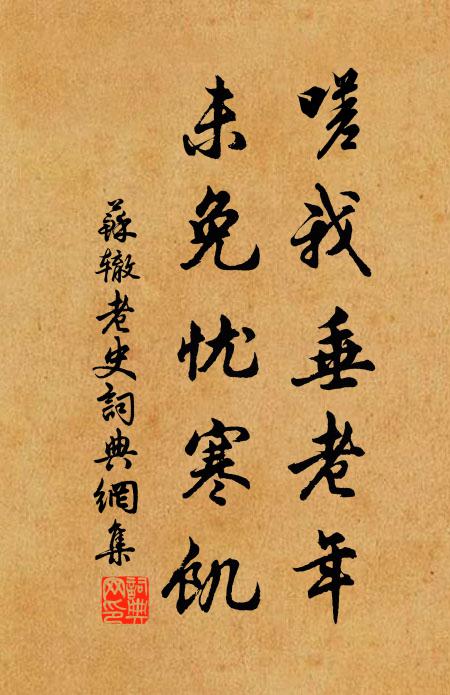 嗟我垂老年
未免忧寒飢
蘇辙老史詞典網集
詞典网印